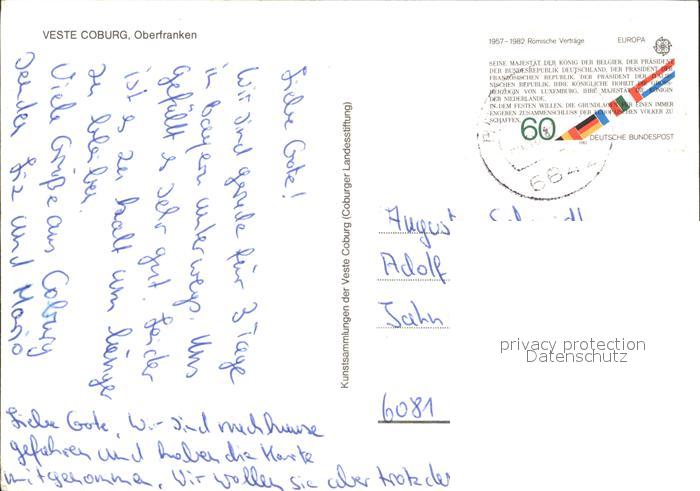 VESTE COBURG, Oberfranken
1957–1982 Römische Verträge EUROPA
SEINE MAJESTÄT DER KÖNIG DER BELGIER, DER PRÄSIDENT
DER BUNDESREPUBLIK DEUTSCHLAND, DER PRÄSIDENT DER
FRANZÖSISCHEN REPUBLIK, DER PRÄSIDENT DER ITALIE-
NISCHEN REPUBLIK, IHRE KÖNIGLICHE HOHEIT DIE GROSS-
HERZOGIN VON LUXEMBURG, IHRE MAJESTÄT DIE KÖNIGIN
DER NIEDERLANDE,
IN DEM FESTEN WILLEN, DIE GRUNDLAGEN FÜR EINEN IMMER
ENGEREN ZUSAMMENSCHLUSS DER EUROPÄISCHEN VÖLKER ZU
SCHAFFEN,
60
DEUTSCHE BUNDESPOST
Liebe Gote!
Wir sind gerade für 3 Tage
in Bayern unterwegs. Uns
gefällt es sehr gut. Leider
ist es zu kalt um länger
zu bleiben.
Viele Grüße aus Coburg
senden Liz und Mario
Kunstsammlungen der Veste Coburg (Coburger Landesstiftung)
August
Adolf
Jahn
6081
privacy protection
Datenschutz
Liebe Gote, Wir sind nachhause
gefahren und haben die Karte
mitgenommen. Wir wollen sie aber trotzdem